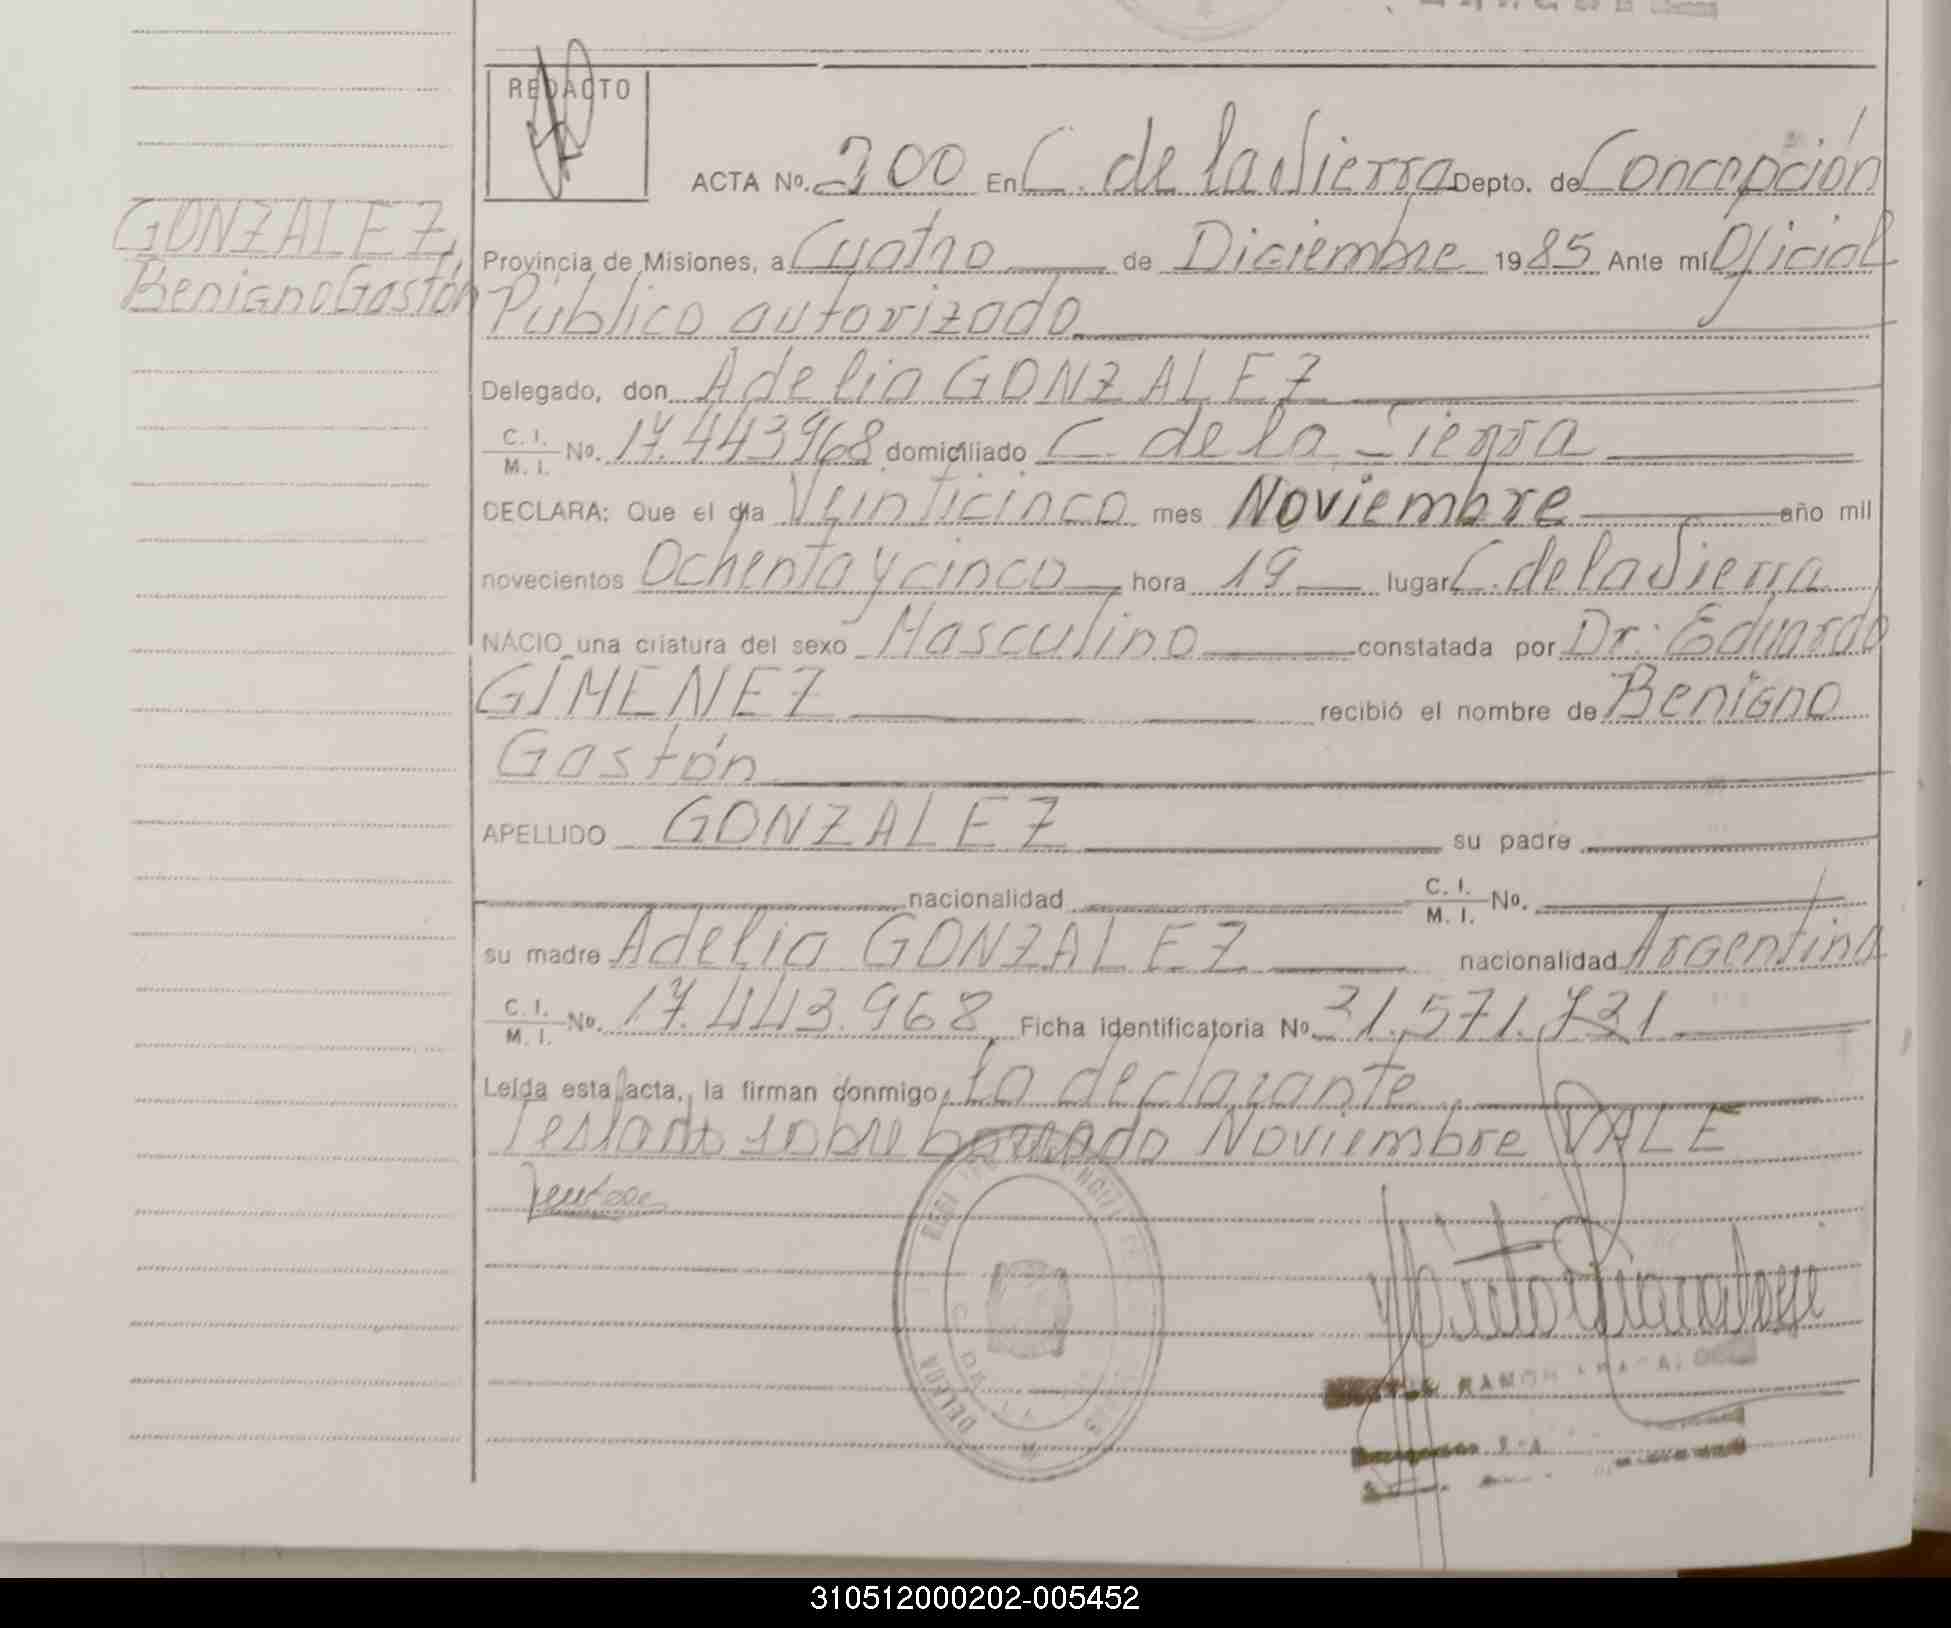 REDACTO
ACTA Nº. 300 En C. de la Sierra Depto. de Concepción
GONZALEZ,
Benigno Gastón
Provincia de Misiones, a Cuatro de Diciembre 1985 Ante mí Oficial
Público autorizado
Delegado, don Adelia GONZALEZ
C. I.
M. I. Nº. 17.443968 domiciliado C. de la Sierra
DECLARA: Que el día Veinticinco mes Noviembre año mil
novecientos Ochenta y cinco hora 19 lugar C. de la Sierra
NACIO una criatura del sexo Masculino constatada por Dr: Eduardo
GIMENEZ recibió el nombre de Benigno
Gastón
APELLIDO GONZALEZ su padre
nacionalidad C. I.
M. I. Nº.
su madre Adelia GONZALEZ nacionalidad Argentina
C. I.
M. I. Nº. 17.443.968 Ficha identificatoria Nº 31.571.731
Leída esta acta, la firman conmigo, la declarante
Testado sobre borrado Noviembre VALE
RAMON
310512000202-005452